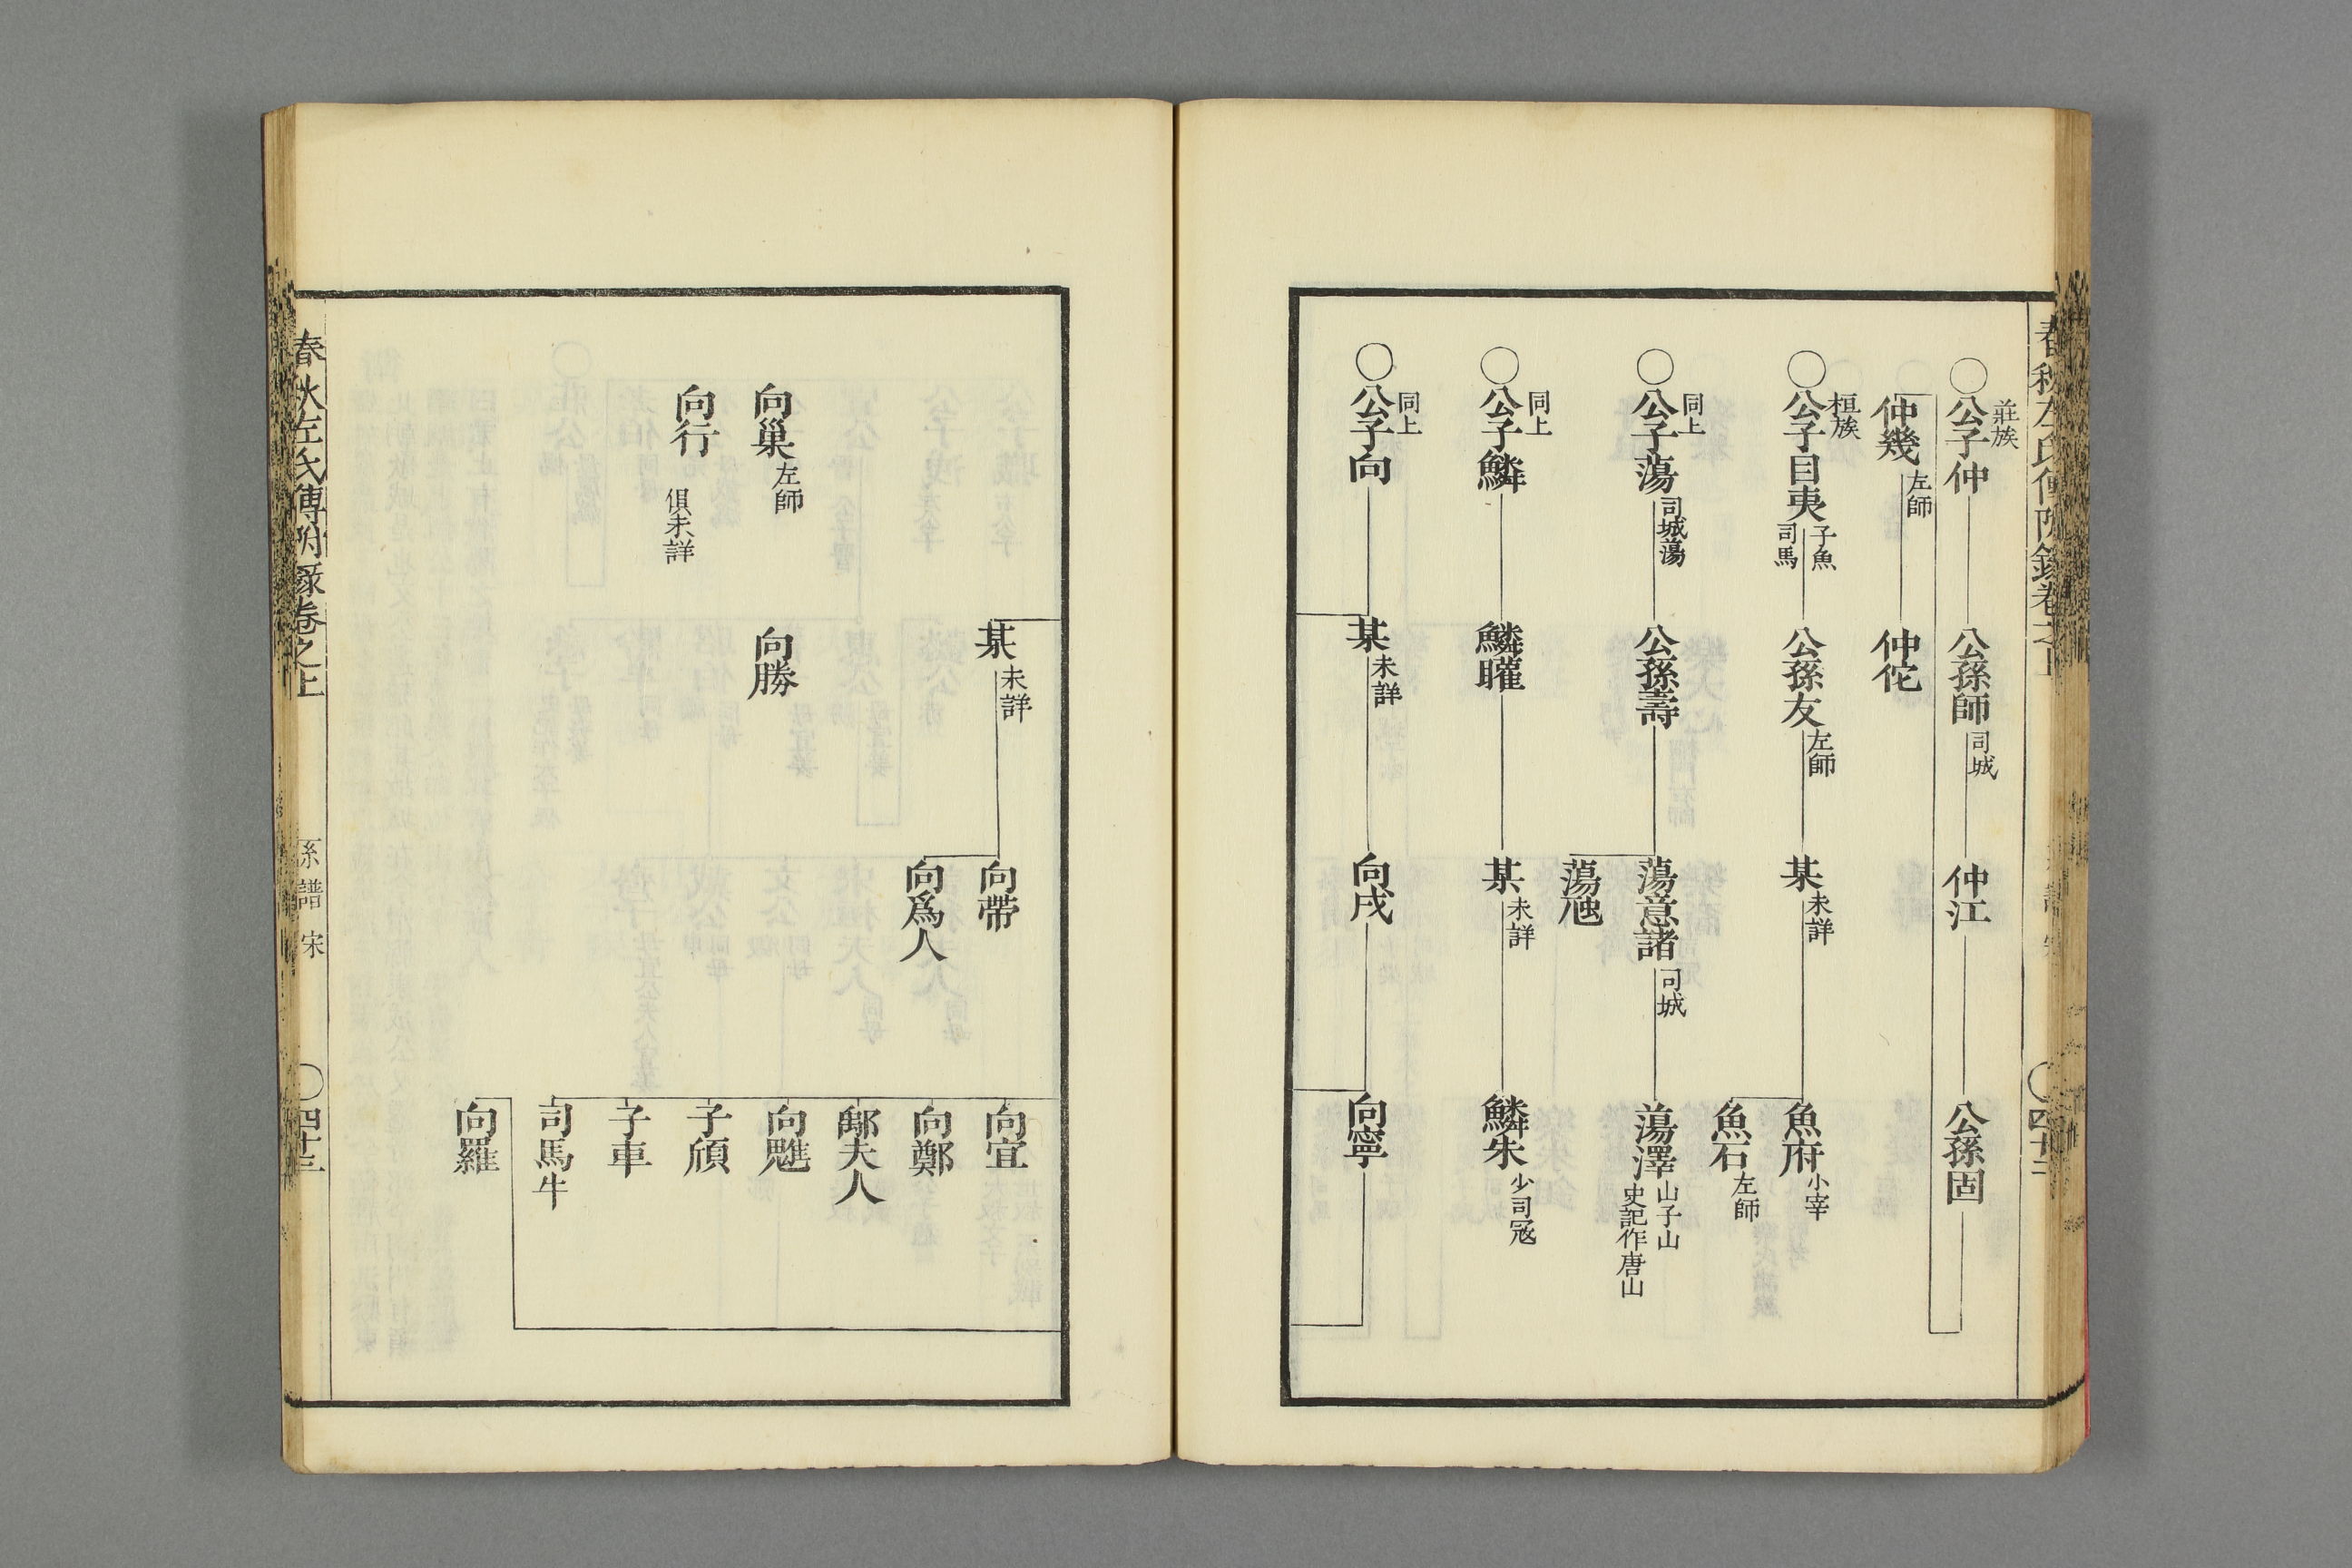 春秋左氏傳附錄卷之上
四十三
莊族
○公子仲
公孫師司城
仲江
公孫固
仲幾左師
仲佗
桓族
○公子目夷子魚
司馬
公孫友左師
某未詳
魚府小宰
魚石左師
同上
○公子蕩司城蕩
公孫壽
蕩意諸司城
蕩虺
蕩澤山子山
史記作唐山
同上
○公子鱗
鱗矔
某未詳
鱗朱少司寇
同上
○公子向
某未詳
向戌
向寧
某未詳
向帶
向爲人
向宜
向鄭
鄅夫人
向魋
子頎
子車
司馬牛
向羅
向巢左師
向勝
向行
俱未詳
春秋左氏傳附錄卷之上
系譜 宋
○四十三